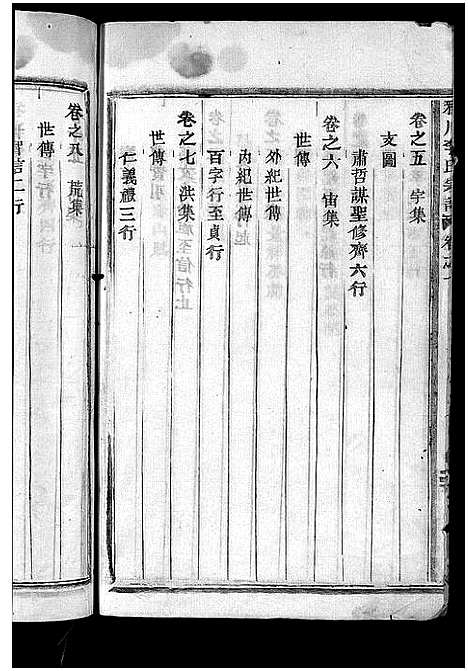 卷之五 宇集
支圖
肅哲謀聖修齊六行
卷之六 宙集
世傳
外紀世傳
內紀世傳
百字行至貞行
卷之七 洪集
世傳
仁義禮三行
卷之八 荒集
世傳
智信二行